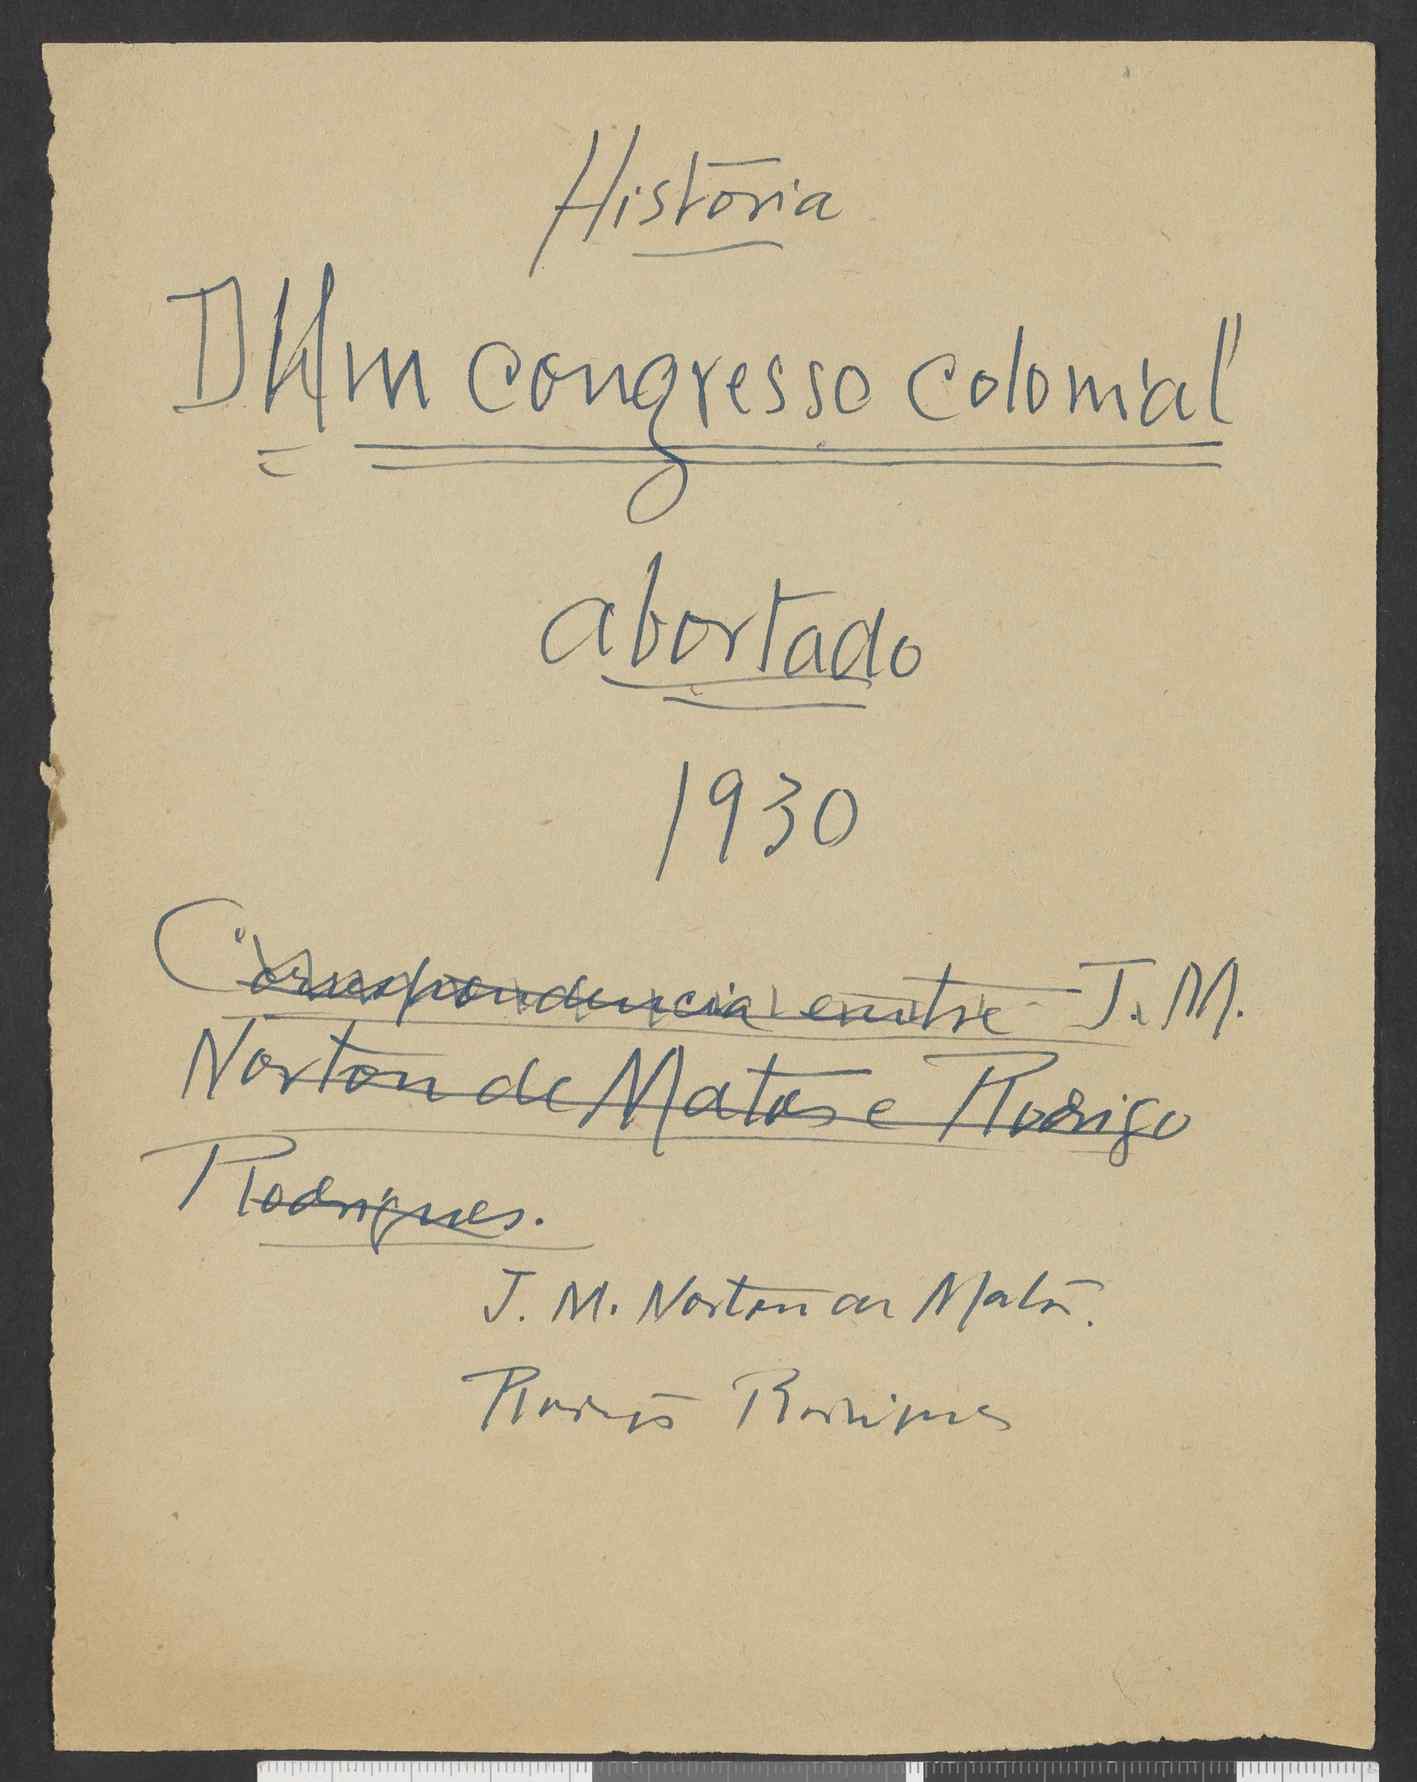 História
D'Um congresso colonial
abortado
1930
Correspondencia entre J. M.
Norton de Matos e Rodrigo
Rodrigues.
J. M. Norton de Matos.
Rodrigo Rodrigues